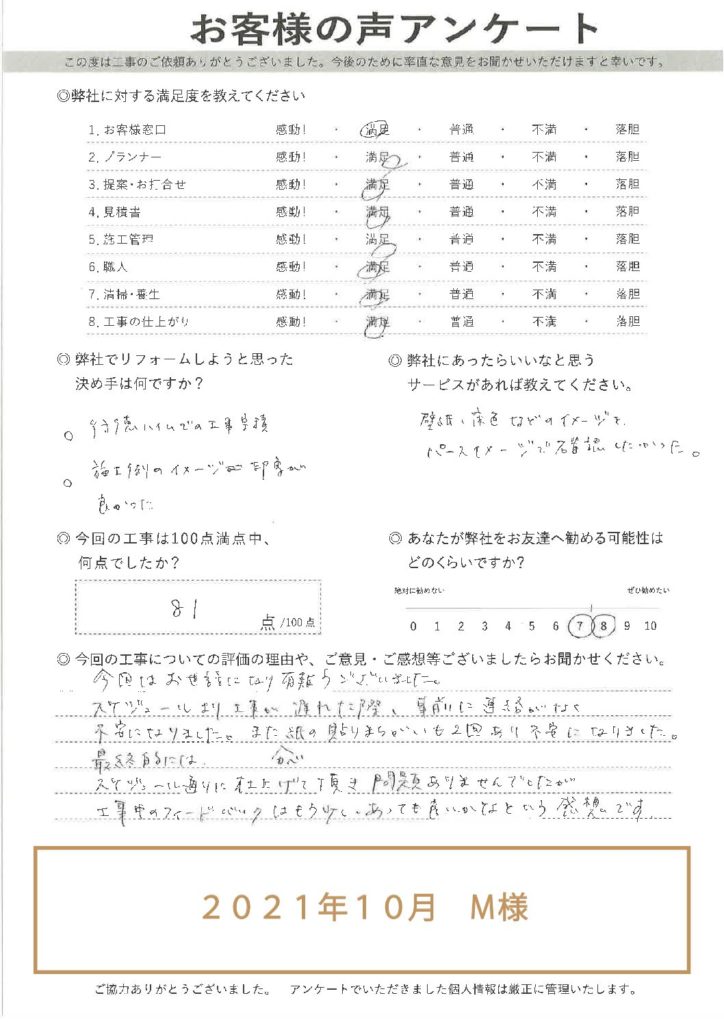 お客様の声アンケート
この度は工事のご依頼ありがとうございました。今後のために率直な意見をお聞かせいただけますと幸いです。
◎弊社に対する満足度を教えてください
1. お客様窓口 感動！ ・ 満足 ・ 普通 ・ 不満 ・ 落胆
2. プランナー 感動！ ・ 満足 ・ 普通 ・ 不満 ・ 落胆
3. 提案・お打合せ 感動！ ・ 満足 ・ 普通 ・ 不満 ・ 落胆
4. 見積書 感動！ ・ 満足 ・ 普通 ・ 不満 ・ 落胆
5. 施工管理 感動！ ・ 満足 ・ 普通 ・ 不満 ・ 落胆
6. 職人 感動！ ・ 満足 ・ 普通 ・ 不満 ・ 落胆
7. 清掃・養生 感動！ ・ 満足 ・ 普通 ・ 不満 ・ 落胆
8. 工事の仕上がり 感動！ ・ 満足 ・ 普通 ・ 不満 ・ 落胆
◎弊社でリフォームしようと思った
決め手は何ですか？
。 ハイムでの工事実績
。 施工例のイメージ 印象が
良かった
◎弊社にあったらいいなと思う
サービスがあれば教えてください。
壁紙、床色などのイメージを
パースイメージで確認したかった。
◎今回の工事は100点満点中、
何点でしたか？
81 点 /100点
◎あなたが弊社をお友達へ勧める可能性は
どのくらいですか？
絶対に勧めない ぜひ勧めたい
0 1 2 3 4 5 6 7 8 9 10
◎今回の工事についての評価の理由や、ご意見・ご感想等ございましたらお聞かせください。
今回はお世話になり有難うございました。
スケジュールより工事が遅れた際、事前に連絡がなく
不安になりました。また紙の貼りまちがいも2回あり不安になりました。
最終的には
スケジュール通りに仕上げて頂き問題ありませんでしたが
工事中のフィードバックはもう少しあっても良いかなという感想です。
2021年10月 M様
ご協力ありがとうございました。 アンケートでいただきました個人情報は厳正に管理いたします。